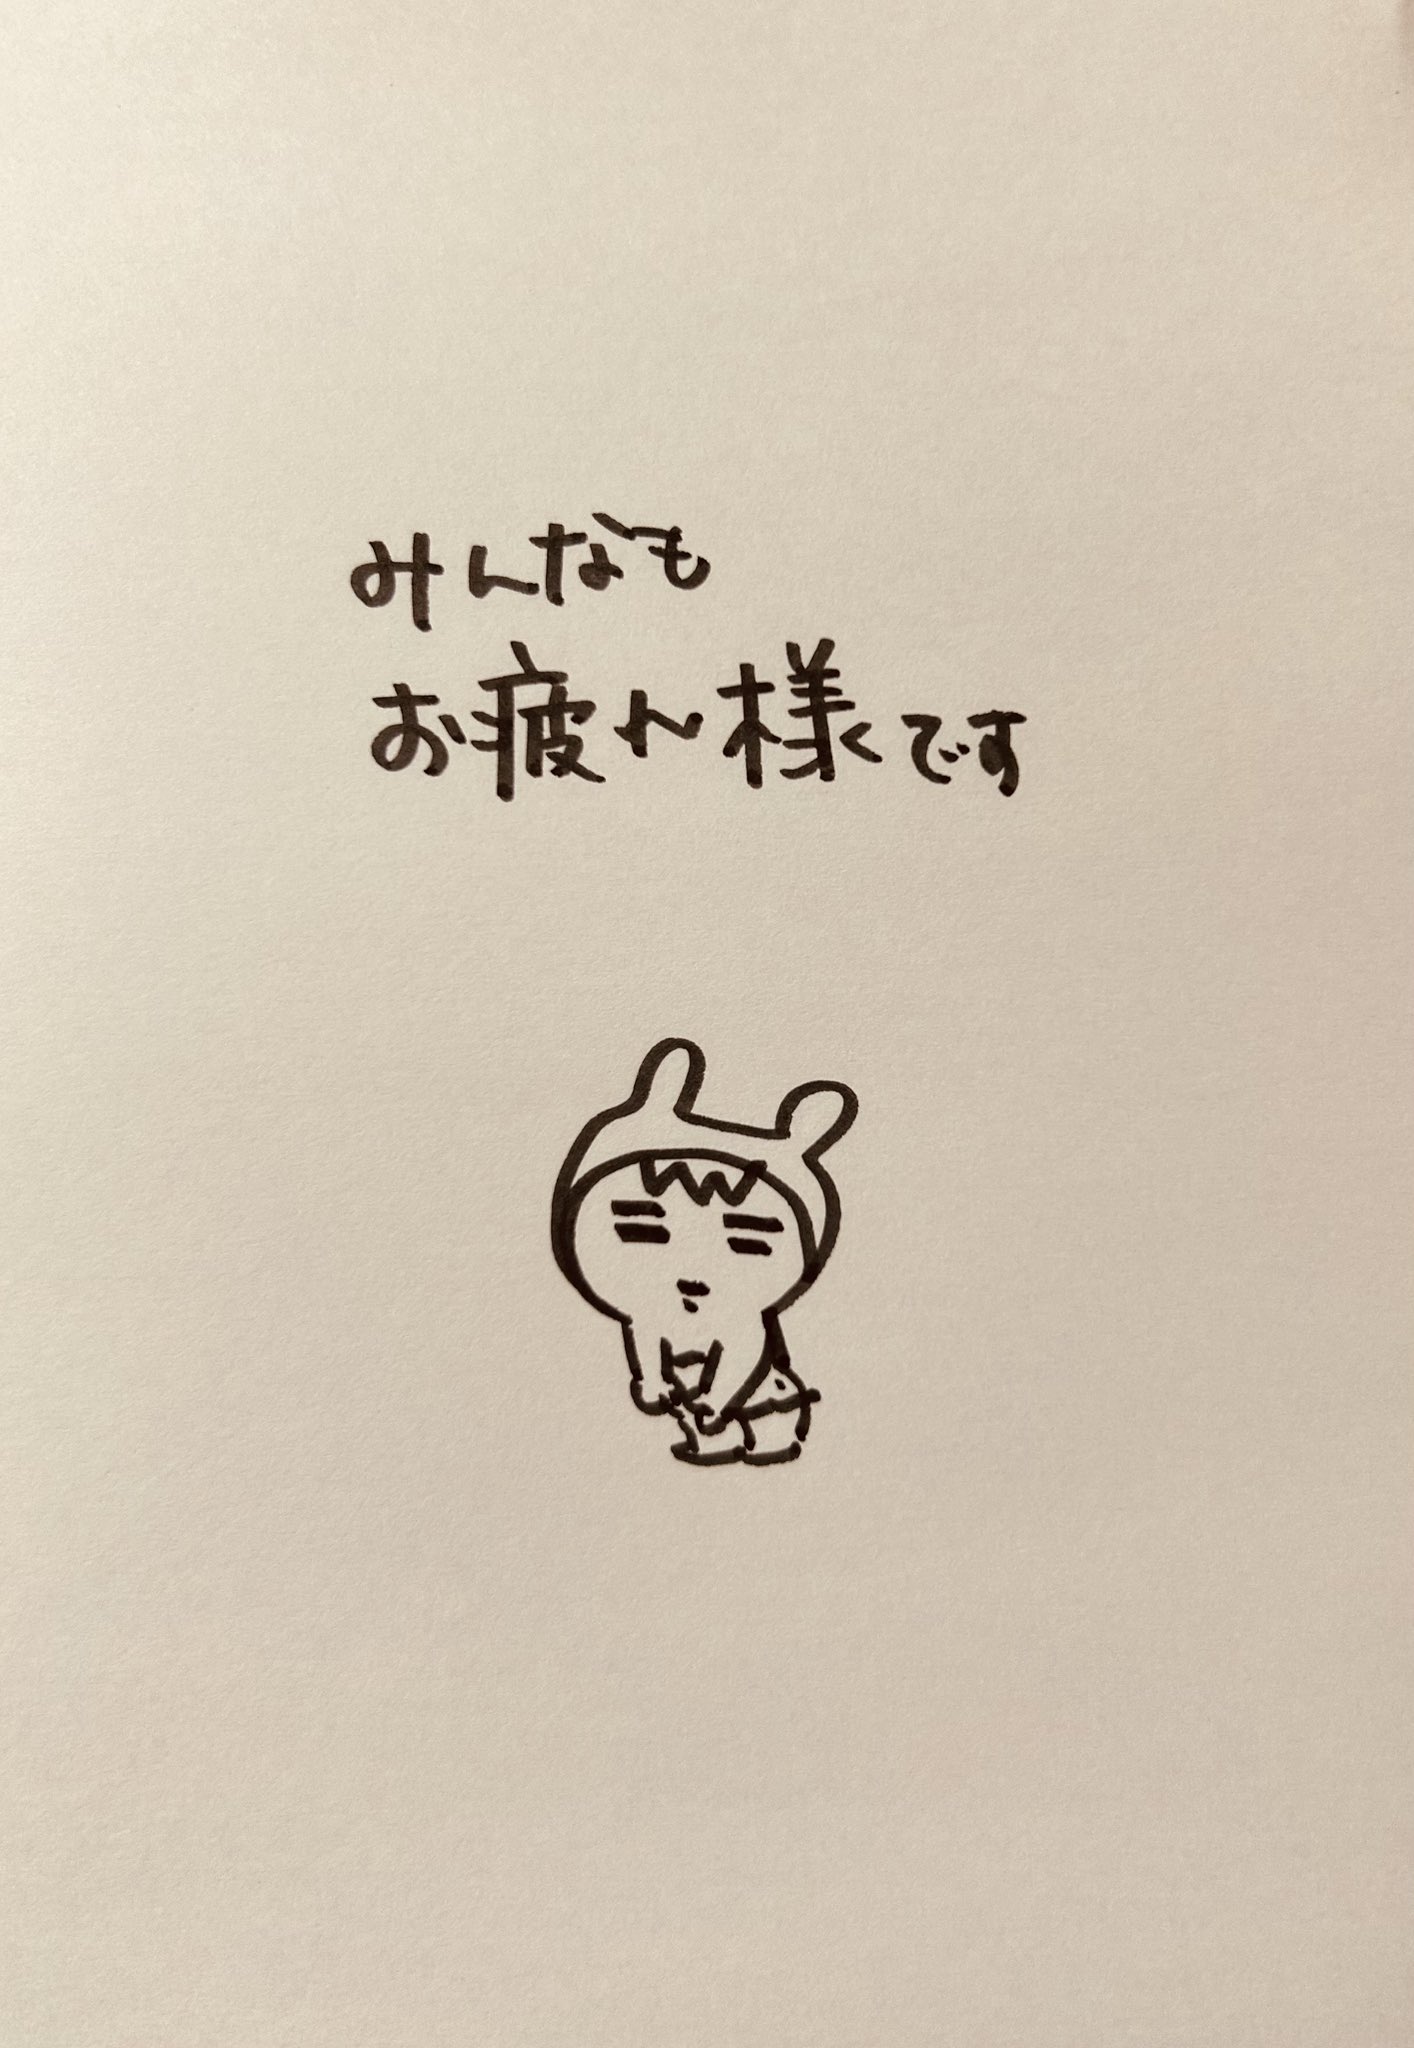 みんなも
お疲れ様です